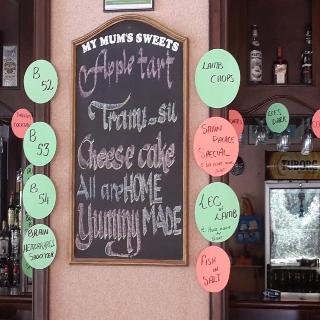 MY MUM'S SWEETS
Apple tart
Trami-su
Cheese cake
All are HOME
Yummy MADE
B
52
B
53
B
54
BRAIN
SHOOTER
LAMB
CHOPS
SPECIAL
LEG OF
LAMB
FISH IN
SALT
TUBORG